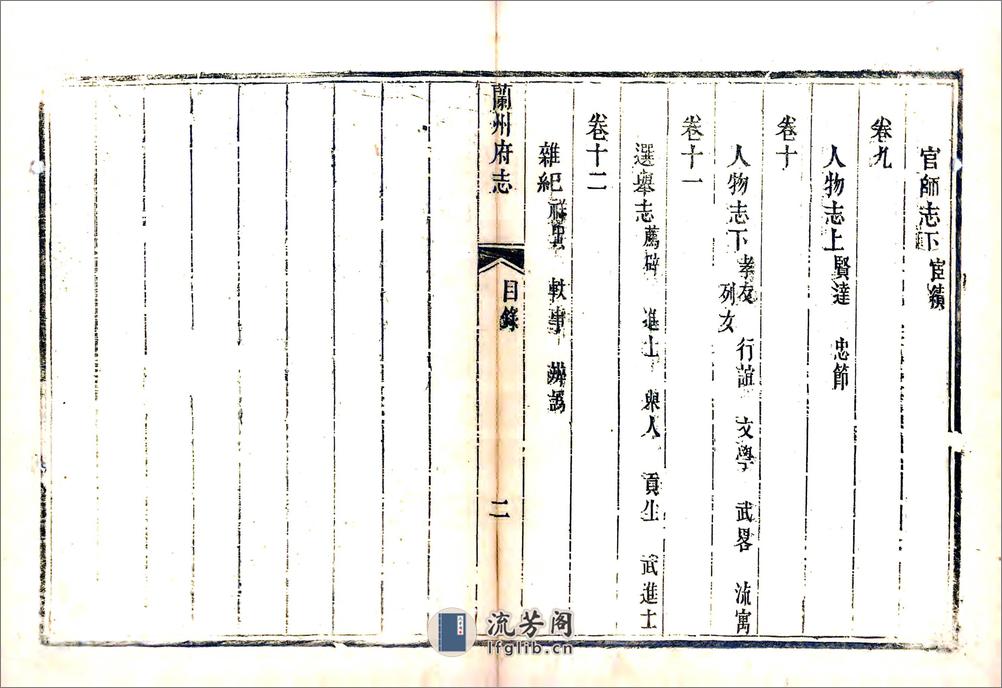 官師志下 宦績
卷九
人物志上 賢達 忠節
卷十
人物志下 孝友 行誼 文學 武畧 流寓
列女
卷十一
選舉志 薦辟 進士 舉人 貢生 武進士
卷十二
雜紀 祥異 軼事 辨譌
蘭州府志 目錄 二
流芳阁
lfglib.cn